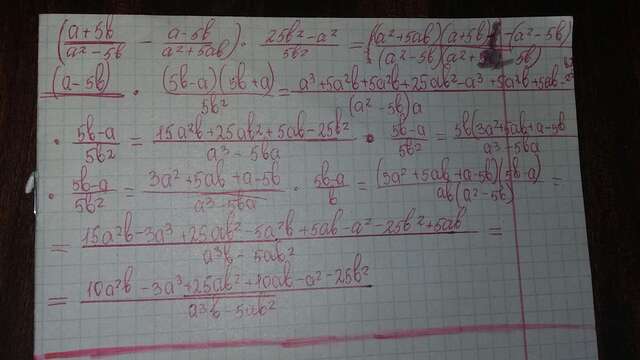 (a+5b/a²-5b - a-5b/a²+5ab) · 25b²-a²/5b² = ((a²+5ab)(a+5b) - (a²-5b)/(a²-5b)(a²+5ab)
(a-5b)) · (5b-a)(5b+a)/5b² = a³+5a²b+5a²b+25ab²-a³+5a²b+5ab-25b²/(a²-5b)a
· 5b-a/5b² = 15a²b+25ab²+5ab-25b²/a³-5ba · 5b-a/5b² = 5b(3a²+5ab+a-5b/a³-5ba
· 5b-a/5b² = 3a²+5ab+a-5b/a³-5ba · 5b-a/b = (3a²+5ab+a-5b)(5b-a)/ab(a²-5b) =
= 15a²b-3a³+25ab²-5a²b+5ab-a²-25b²+5ab/a³b-5ab² =
= 10a²b-3a³+25ab²+10ab-a²-25b²/a³b-5ab²